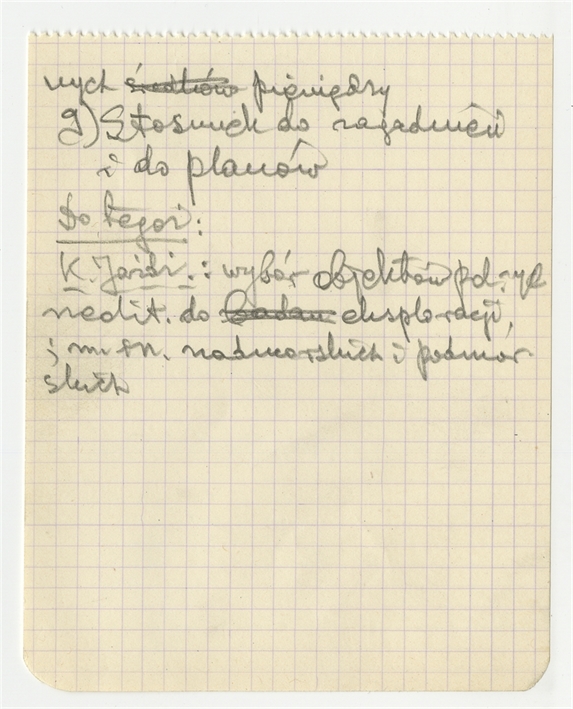 nych środków pieniędzy
9) Stosunek do zagadnień
i do planów
Do tegoż:
K. Jażdż.: wybór objektów
do badań eksploracji,
i m. in. nadmorskich i podmor
skich